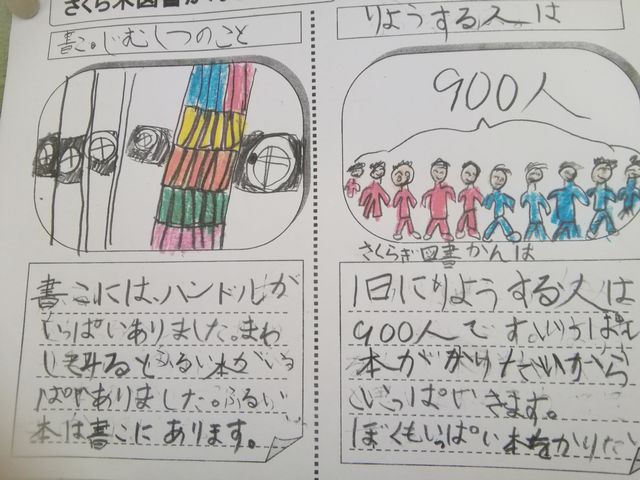 さくら木図書かん
書こ。じむしつのこと
書こには、ハンドルが
いっぱいありました。まわ
してみるとふるい本がいっ
ぱいありました。ふるい
本は書こにあります。
りようする人は
900人
さくらぎ図書かんは
1日にりようする人は
900人です。いっぱい
本がかりたいから
いっぱいきます。
ぼくもいっぱい本をかりたい